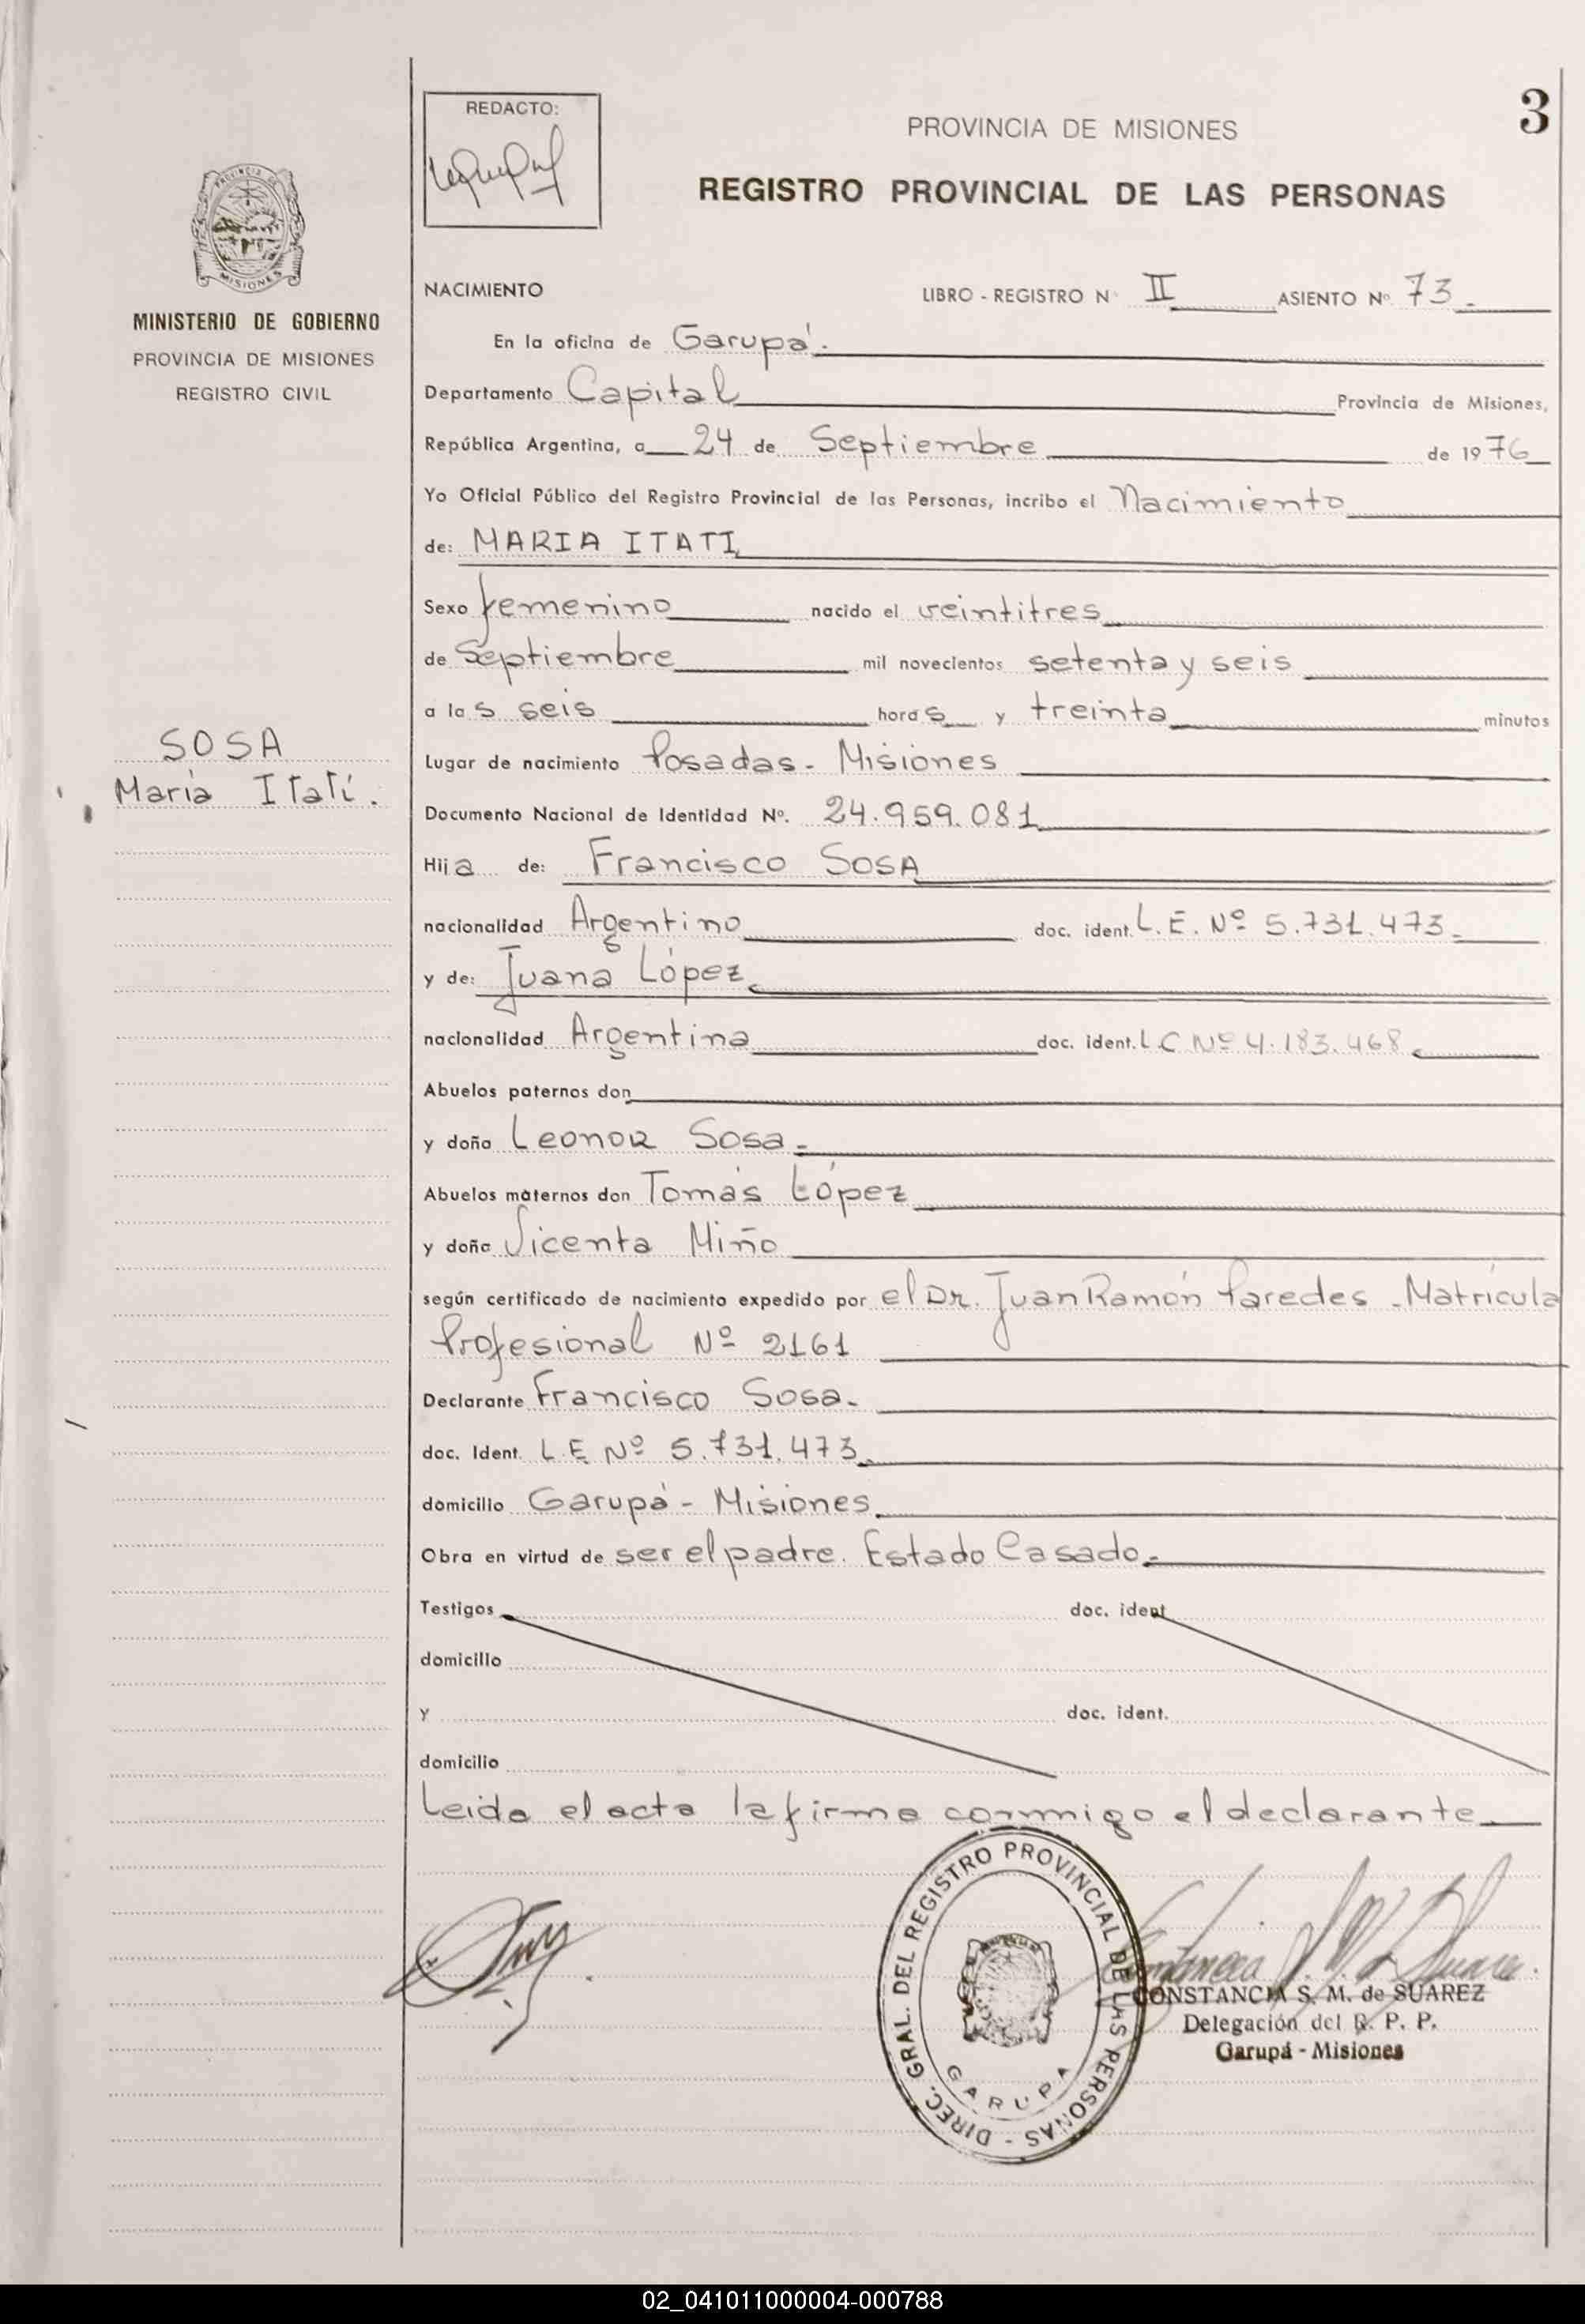 REDACTO:
3
PROVINCIA DE MISIONES
REGISTRO PROVINCIAL DE LAS PERSONAS
PROVINCIA DE
MISIONES
MINISTERIO DE GOBIERNO
PROVINCIA DE MISIONES
REGISTRO CIVIL
SOSA
María Itatí.
NACIMIENTO LIBRO - REGISTRO N° II ASIENTO Nº. 73.
En la oficina de Garupá.
Departamento Capital Provincia de Misiones,
República Argentina, a 24 de Septiembre de 1976
Yo Oficial Público del Registro Provincial de las Personas, incribo el Nacimiento
de: MARIA ITATI
Sexo femenino nacido el veintitres
de Septiembre mil novecientos setenta y seis
a las seis horas y treinta minutos
Lugar de nacimiento Posadas - Misiones
Documento Nacional de Identidad Nº. 24.959.081
Hija de: Francisco SOSA
nacionalidad Argentino doc. ident. L.E. Nº 5.731.473.
y de: Juana López
nacionalidad Argentina doc. ident. L.C Nº 4.183.468
Abuelos paternos don
y doña Leonor Sosa.
Abuelos maternos don Tomás López
y doña Vicenta Miño
según certificado de nacimiento expedido por el Dr. Juan Ramón Paredes - Matrícula
Profesional Nº 2161
Declarante Francisco Sosa.
doc. Ident. L.E Nº 5.731.473
domicilio Garupá - Misiones
Obra en virtud de ser el padre. Estado Casado.
Testigos doc. ident
domicilio
y doc. ident.
domicilio
Leida el acta la firma conmigo el declarante
DIREC. GRAL. DEL REGISTRO PROVINCIAL DE LAS PERSONAS -
GARUPA
CONSTANCIA S. M. de SUAREZ
Delegación del R. P. P.
Garupá - Misiones
02_041011000004-000788